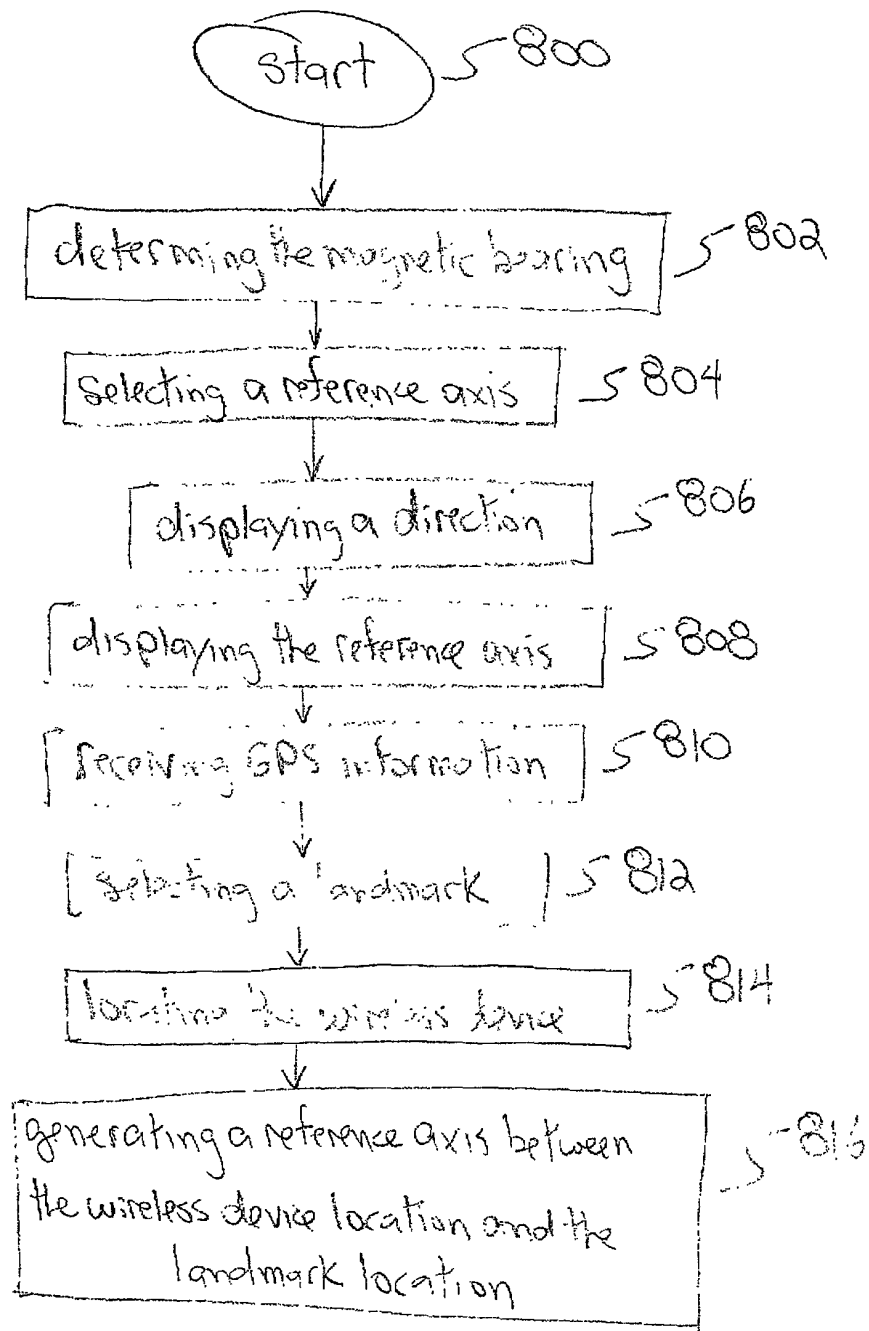 start 800
determing the magnetic bearing 802
selecting a reference axis 804
displaying a direction 806
displaying the reference axis 808
receiving GPS information 810
selecting a landmark 812
locating the wireless device 814
generating a reference axis between
the wireless device location and the
landmark location
816